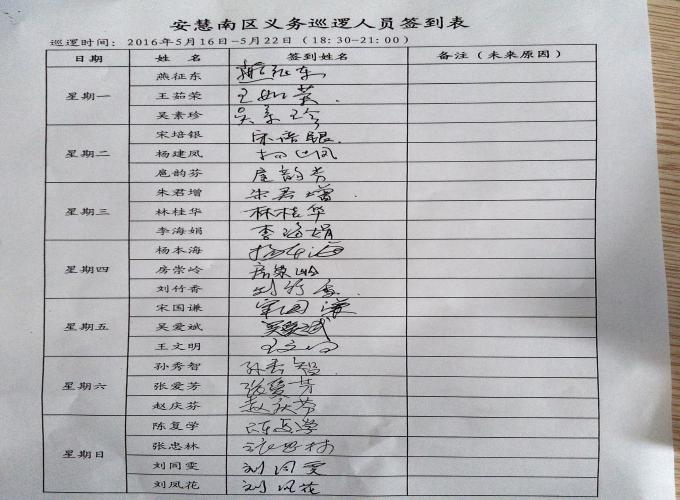 安慧南区义务巡逻人员签到表
巡逻时间： 2016年5月16日-5月22日（18：30-21：00）
日期 姓 名 签到姓名 备注（未来原因）
星期一 燕征东 燕征东
王茹荣 王如荣
吴素珍 吴素珍
星期二 宋培银 宋培银
杨建凤 杨建凤
扈韵芬 扈韵芳
星期三 朱君增 朱君增
林桂华 林桂华
李海娟 李海娟
星期四 杨本海 杨本海
房崇岭 房崇岭
刘竹香 刘竹香
星期五 宋国谦 宋国谦
吴爱斌 吴爱斌
王文明 王文明
星期六 孙秀智 孙秀智
张爱芳 张爱芳
赵庆芬 赵庆芬
星期日 陈复学 陈复学
张忠林 张忠林
刘同雯 刘同雯
刘凤花 刘凤花